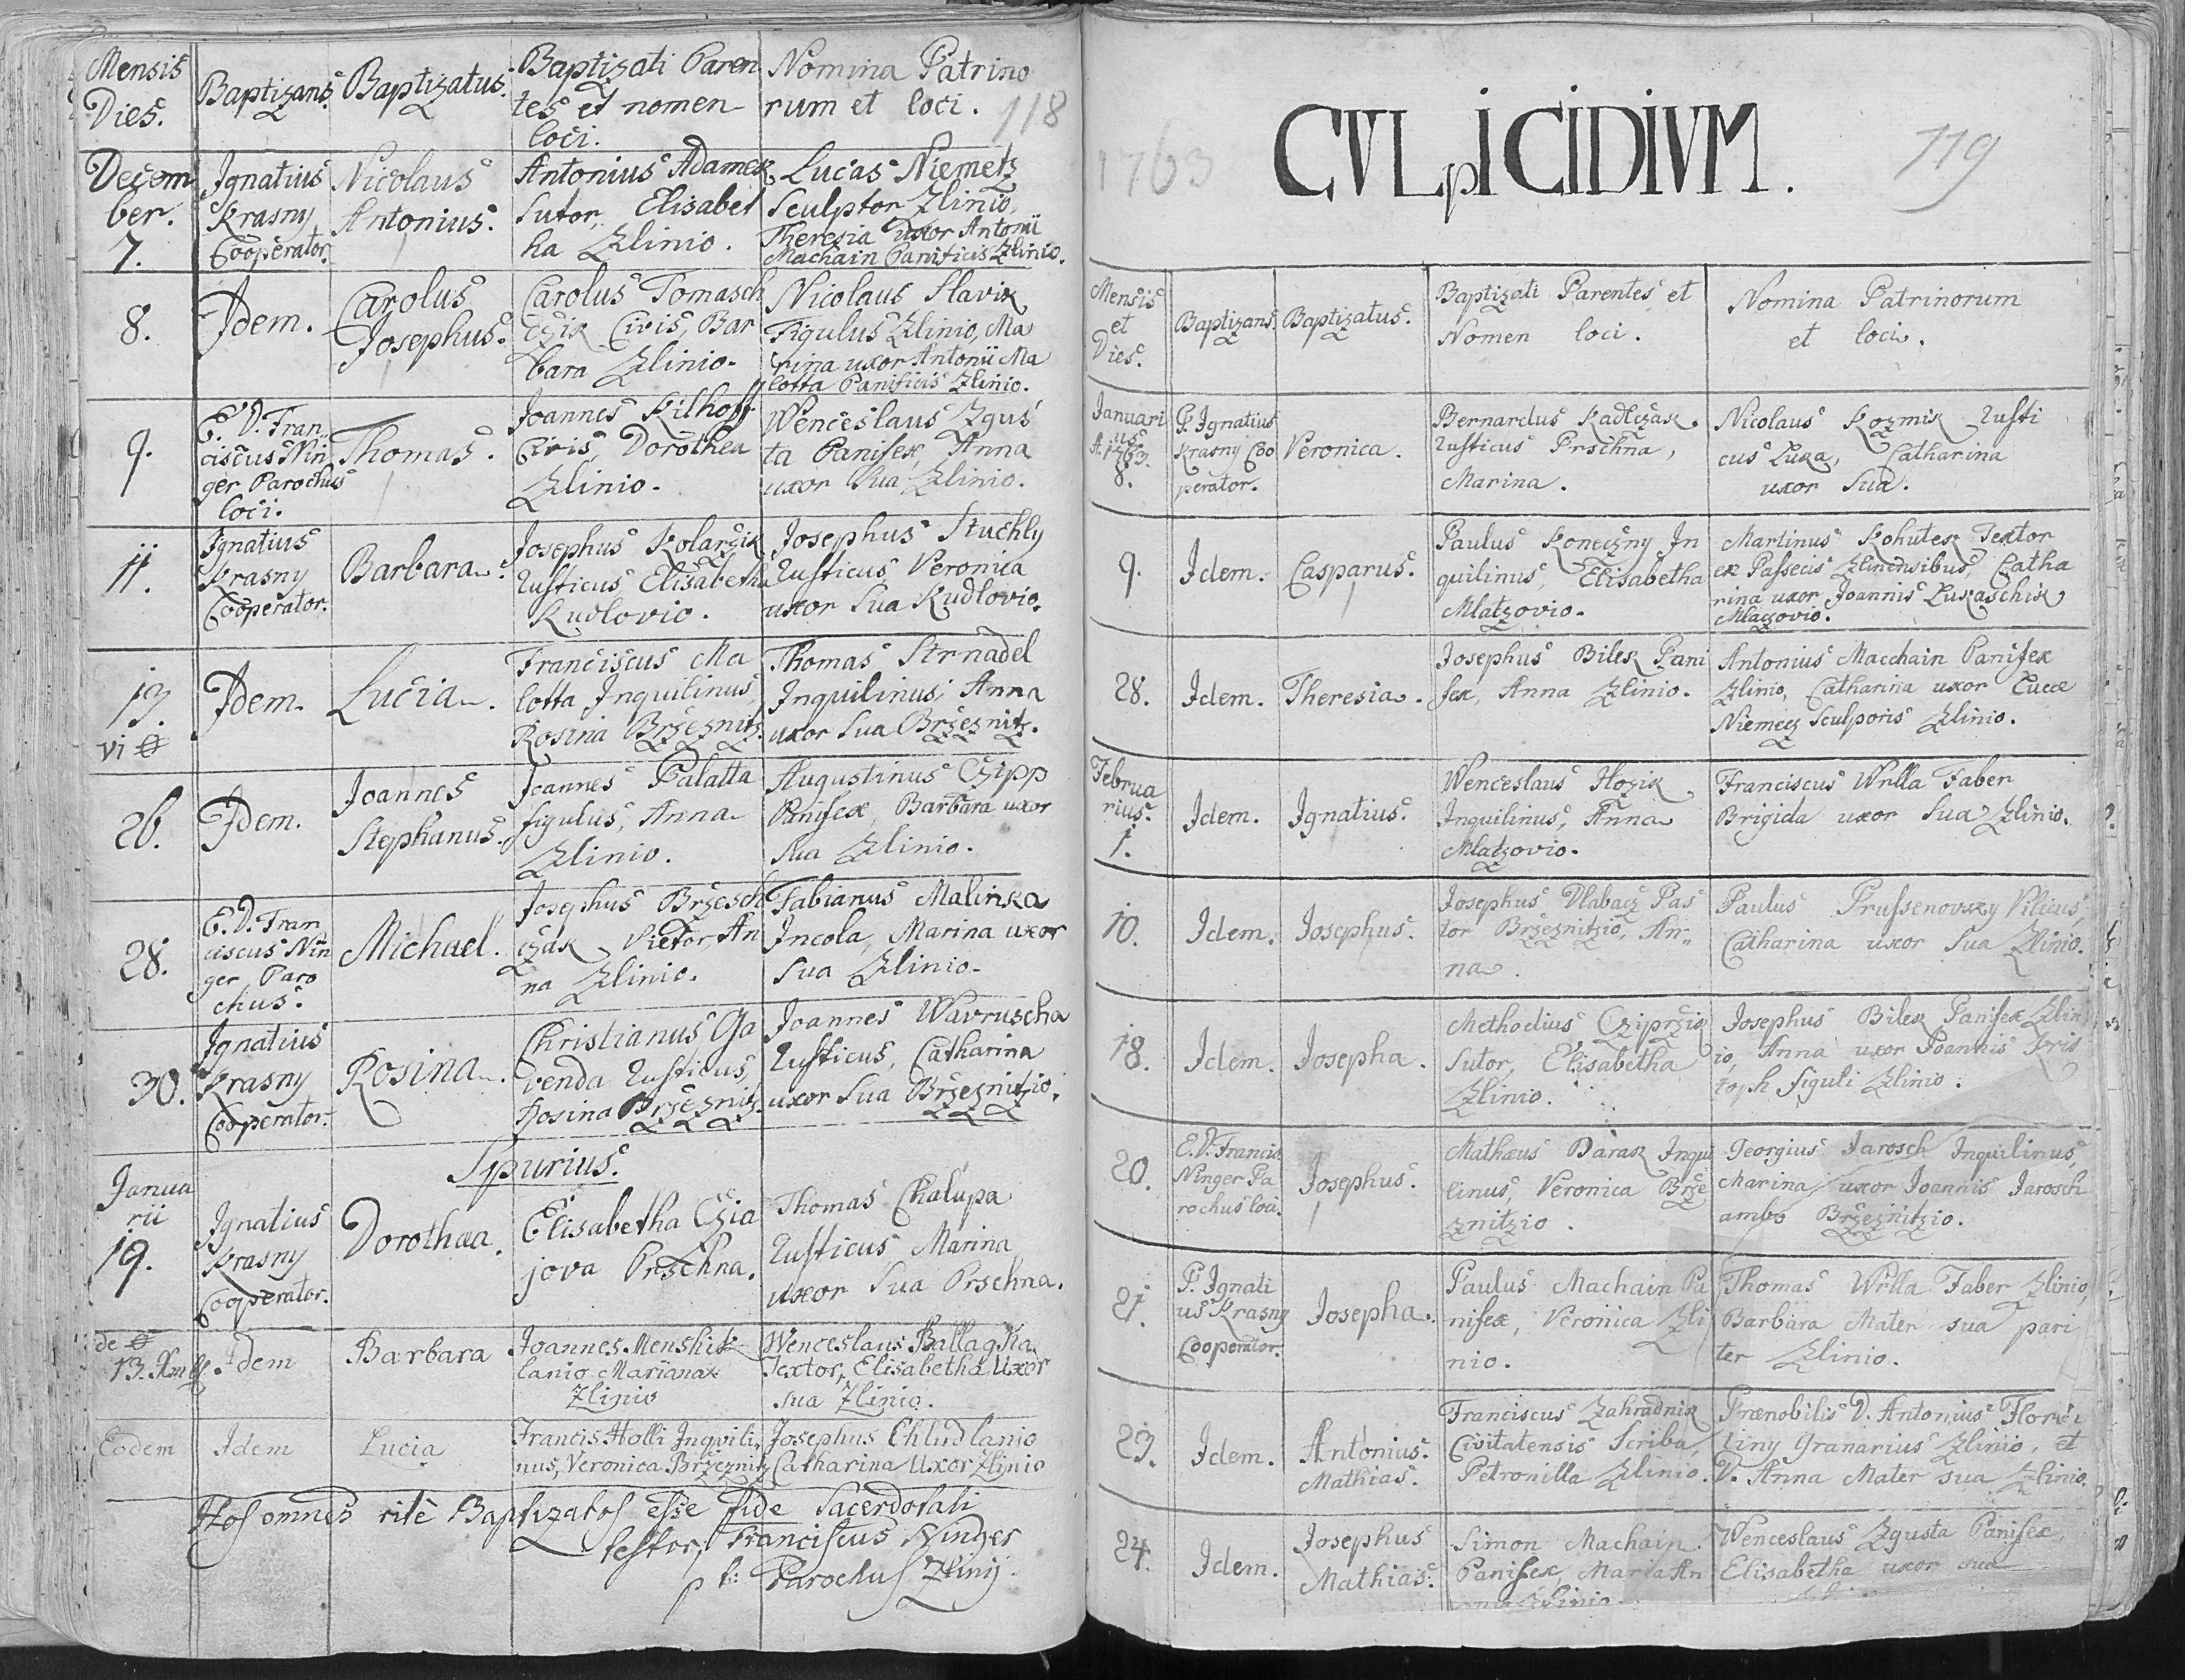 Mensis
Dies.
Baptizans
Baptizatus.
Baptizati Paren
tes et nomen
loci.
Nomina Patrino
rum et loci.
118
Decem
ber.
7.
Ignatius
Krasny
Cooperator.
Nicolaus
Antonius.
Antonius Adamek
Sutor, Elisabet
ha Zlinio.
Lucas Niemetz
Sculptor Zlinio,
Theresia uxor Antonii
Machain Panificis Zlinio.
8.
Idem.
Carolus
Josephus.
Carolus Tomasch
czik Civis, Bar
bara Zlinio.
Nicolaus Slavik
Figulus Zlinio, Ma
rina uxor Antonii Ma
lotta Panificis Zlinio.
9.
E. D. Fran
ciscus Nin
ger Parochus
loci.
Thomas.
Joannes Kilhoff
Civis, Dorothea
Zlinio.
Wenceslaus Zgus
ta Panifex, Anna
uxor Sua Zlinio.
11.
Ignatius
Krasny
Cooperator.
Barbara.
Josephus Kolarzik
Rusticus Elisabetha
Kudlovio.
Josephus Stuchly
Rusticus, Veronica
uxor Sua Kudlovio.
13.
vi
Idem.
Lucia.
Franciscus Ma
lotta Inquilinus,
Rosina Brzeznitz.
Thomas Strnadel
Inquilinus, Anna
uxor Sua Brzeznitz.
26.
Idem.
Joannes
Stephanus.
Joannes Palatta
figulus, Anna
Zlinio.
Augustinus Czipp
Panifex, Barbara uxor
Sua Zlinio.
28.
E. D. Fran
ciscus Nin
ger Paro
chus.
Michael.
Josephus Brzesch
czak Vietor, An
na Zlinio.
Fabianus Malinka
Incola, Marina uxor
Sua Zlinio.
30.
Ignatius
Krasny
Cooperator.
Rosina.
Christianus Ga
venda Rusticus,
Rosina Brzeznitz.
Joannes Wavruscha
Rusticus, Catharina
uxor Sua Brzeznitzio.
Spurius.
Janua
rii
19.
Ignatius
Krasny
Cooperator.
Dorothaea.
Elisabetha Czia
jova Prschna.
Thomas Chalupa
Rusticus Marina
uxor Sua Prschna.
de
13. Xmbs.
Idem
Barbara
Joannes Menshik
lanio Mariana
Zlinio
Wenceslaus Ballagha
Textor, Elisabetha Uxor
sua Zlinio.
Eodem
Idem
Lucia
Francis Holli Inqvili
nus, Veronica Brzeznitz
Josephus Chlud lanio
Catharina Uxor Zlinio
Hos omnes rite Baptizatos esse fide Sacerdotali
testor, Franciscus Ninger
p t: Parochus Zlinij.
1763
CVLpICIDIVM.
119
Mensis
et
Dies.
Baptizans.
Baptizatus.
Baptizati Parentes et
Nomen loci.
Nomina Patrinorum
et loci.
Januari
us
A. 1763.
8.
P. Ignatius
Krasny Coo
perator.
Veronica.
Bernardus Kadlczak
Rusticus Prschna,
Marina.
Nicolaus Kozmik Rusti
cus Luka, Catharina
uxor Sua.
9.
Idem.
Casparus.
Paulus Koneczny In
quilinus, Elisabetha
Mlatzovio.
Martinus Kohutek Textor
ex Passecis Zlinensibus, Catha
rina uxor Joannis Lukaschik
Mlaczovio.
28.
Idem.
Theresia.
Josephus Bilek Pani
fex, Anna Zlinio.
Antonius Macchain Panifex
Zlinio, Catharina uxor Lucae
Niemecz Sculporis Zlinio.
Februa
rius.
1.
Idem.
Ignatius.
Wenceslaus Hozik
Inquilinus, Anna
Mlatzovio.
Franciscus Wrlla Faber
Brigida uxor Sua Zlinio.
10.
Idem.
Josephus.
Josephus Dlabacz Pas
tor Brzeznitzio, An
na.
Paulus Prussenovsky Vilicus,
Catharina uxor Sua Zlinio.
18.
Idem.
Josepha.
Methodius Cziprzik
Sutor, Elisabetha
Zlinio.
Josephus Bilek Panifex Zlin
io, Anna uxor Joannis Kris
toph figuli Zlinio.
20.
E. D. Francis
Ninger Pa
rochus loci.
Josephus.
Mathaeus Darak Inqui
linus, Veronica Brze
znitzio.
Georgius Jarosch Inquilinus,
Marina uxor Joannis Jarosch
ambo Brzeznitzio.
21.
P. Ignati
us Krasny
Cooperator.
Josepha.
Paulus Machain Pa
nifex, Veronica Zli
nio.
Thomas Wrlla Faber Zlinio,
Barbara Mater sua pari
ter Zlinio.
23.
Idem.
Antonius
Mathias.
Franciscus Zahradnik
Civitatensis Scriba,
Petronilla Zlinio.
Praenobilis D. Antonius Floren
tiny Granarius Zlinio, et
D. Anna Mater sua Zlinio.
24.
Idem.
Josephus
Mathias.
Simon Machain
Panifex, Maria An
na Zlinio.
Wenceslaus Zgusta Panifex,
Elisabetha uxor sua